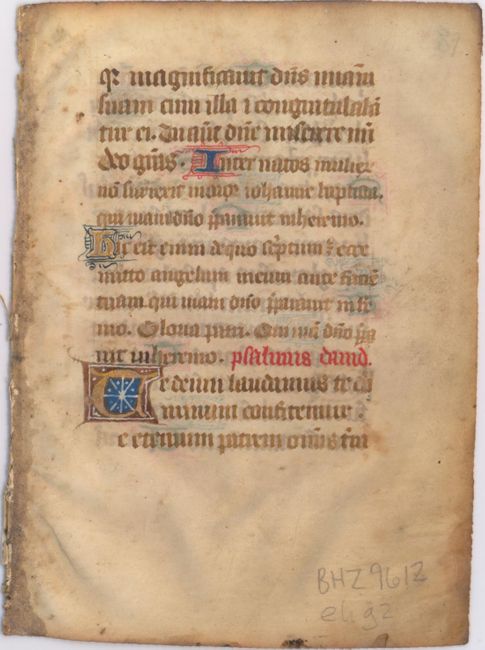 qr magnificauit dns miam
suam cum illa i congratulaba
tur ei. Tu aut dne miserere nri
deo gras. Inter natos mulier
no surrexit maior iohanne baptista.
qui uiam dno pparauit in heremo.
Hic est enim de quo scriptum est ecce
mitto angelum meum ante facie
tuam qui uiam dno pparauit in he
mo. Gloria patri. Qui uia dno ppa
uit in heremo. psalmus dauid.
Te deum laudamus te do
minum confitemur
Te eternum patrem omis tra
BHZ 9612
eh g2